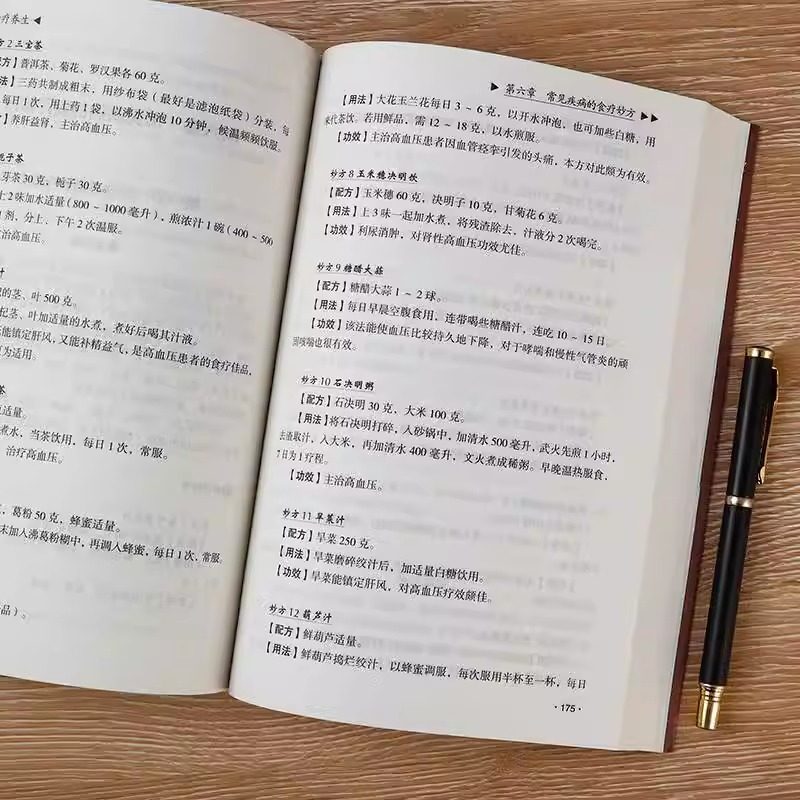 疗养生 ◀
方2 三宝茶
方】普洱茶、菊花、罗汉果各 60 克。
法】三药共制成粗末，用纱布袋（最好是滤泡纸袋）分装，每
每日 1 次，用上药 1 袋，以沸水冲泡 10 分钟，候温频频饮服。
】养肝益肾，主治高血压。
栀子茶
芽茶 30 克，栀子 30 克。
上 2 味加水适量（800～1000 毫升），煎浓汁 1 碗（400～500
剂，分上、下午 2 次温服。
治高血压。
汁
的茎、叶 500 克。
茎、叶加适量的水煮，煮好后喝其汁液。
能镇定肝风，又能补精益气，是高血压患者的食疗佳品，
为适用。
茶
适量。
煮水，当茶饮用，每日 1 次，常服。
治疗高血压。
葛粉 50 克，蜂蜜适量。
末加入沸葛粉糊中，再调入蜂蜜，每日 1 次，常服。
品）。
▶ 第六章 常见疾病的食疗妙方 ▶▶
【用法】大花玉兰花每日 3～6 克，以开水冲泡，也可加些白糖，用
来代茶饮。若用鲜品，需 12～18 克，以水煎服。
【功效】主治高血压患者因血管痉挛引发的头痛，本方对此颇为有效。
妙方 8 玉米穗决明饮
【配方】玉米穗 60 克，决明子 10 克，甘菊花 6 克。
【用法】上 3 味一起加水煮，将残渣除去，汁液分 2 次喝完。
【功效】利尿消肿，对肾性高血压功效尤佳。
妙方 9 糖醋大蒜
【配方】糖醋大蒜 1～2 球。
【用法】每日早晨空腹食用，连带喝些糖醋汁，连吃 10～15 日。
【功效】该法能使血压比较持久地下降，对于哮喘和慢性气管炎的顽
固咳喘也很有效。
妙方 10 石决明粥
【配方】石决明 30 克，大米 100 克。
【用法】将石决明打碎，入砂锅中，加清水 500 毫升，武火先煎 1 小时，
去渣取汁，入大米，再加清水 400 毫升，文火煮成稀粥。早晚温热服食，
7 日为 1 疗程。
【功效】主治高血压。
妙方 11 旱菜汁
【配方】旱菜 250 克。
【用法】旱菜磨碎绞汁后，加适量白糖饮用。
【功效】旱菜能镇定肝风，对高血压疗效颇佳。
妙方 12 葫芦汁
【配方】鲜葫芦适量。
【用法】鲜葫芦捣烂绞汁，以蜂蜜调服，每次服用半杯至一杯，每日
· 175 ·